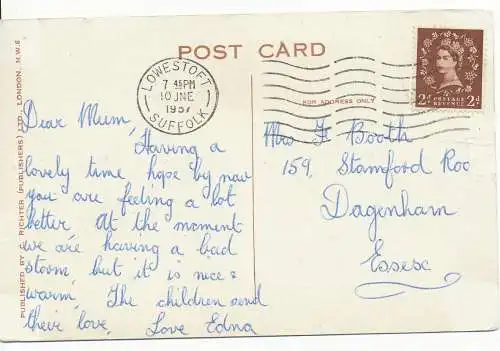 POST CARD
LOWESTOFT
7 45PM
10 JNE
1957
SUFFOLK
2D POSTAGE REVENUE 2D
FOR ADDRESS ONLY
Dear Mum,
Having a
lovely time hope by now
you are feeling a lot
better. At the moment
we are having a bad
storm, but it is nice &
warm. The children send
their love. Love Edna
Mrs F Booth
159, Stamford Roa
Dagenham
Essex
PUBLISHED BY C. RICHTER (PUBLISHERS) LTD., LONDON, N.W.6